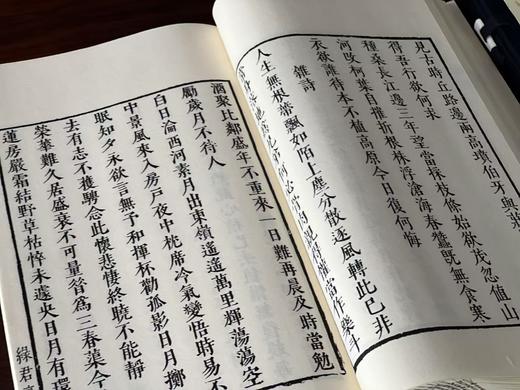 見古時丘路邊兩高墳伯牙與莊
得吾行欲何求
種桑長江邊三年望當採枝條始欲茂忽值山
河改柯葉自摧折根株浮滄海春蠶既無食寒
衣欲誰待本不植高原今日復何悔
雜詩
人生無根蒂飄如陌上塵分散逐風轉此已非
得歡當作樂斗
酒聚比鄰盛年不重來一日難再晨及時當勉
勵歲月不待人
白日淪西河素月出東嶺遙遙萬里輝蕩蕩空
中景風來入房戶夜中枕席冷氣變悟時易不
眠知夕永欲言無予和揮杯勸孤影日月擲
去有志不獲騁念此懷悲悽終曉不能靜
榮華難久居盛衰不可量昔爲三春蕖今
蓮房嚴霜結野草枯悴未遽央日月有環
綠君